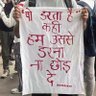 वो डरता है
कहीं
हम उससे
डरना
ना छोड़
दे